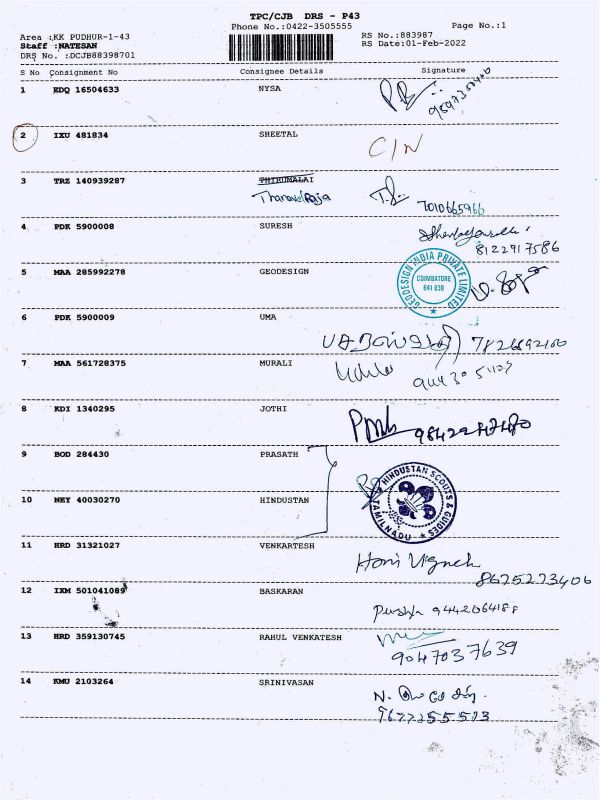 TPC/CJB DRS - P43
Phone No.:0422-3505555
Page No.:1
Area :KK PUDHUR-1-43
RS No.:883987
Staff :NATESAN
RS Date:01-Feb-2022
DRS No. :DCJB88398701
S No Consignment No Consignee Details Signature
1 EDQ 16504633 NYSA
2 IXU 481834 SHEETAL
C/N
3 TRZ 140939287 THIRUMALAI
7010665966
4 PDK 5900008 SURESH
8122917586
5 MAA 285992278 GEODESIGN
GEODESIGN INDIA PRIVATE LIMITED
COIMBATORE
641 038
6 PDK 5900009 UMA
7 MAA 561728375 MURALI
8 KDI 1340295 JOTHI
9 BOD 284430 PRASATH
HINDUSTAN SCOUTS & GUIDES
TAMILNADU
10 NEY 40030270 HINDUSTAN
11 HRD 31321027 VENKARTESH
8675273406
12 IXM 501041089 BASKARAN
13 HRD 359130745 RAHUL VENKATESH
9047037639
14 KMU 2103264 SRINIVASAN